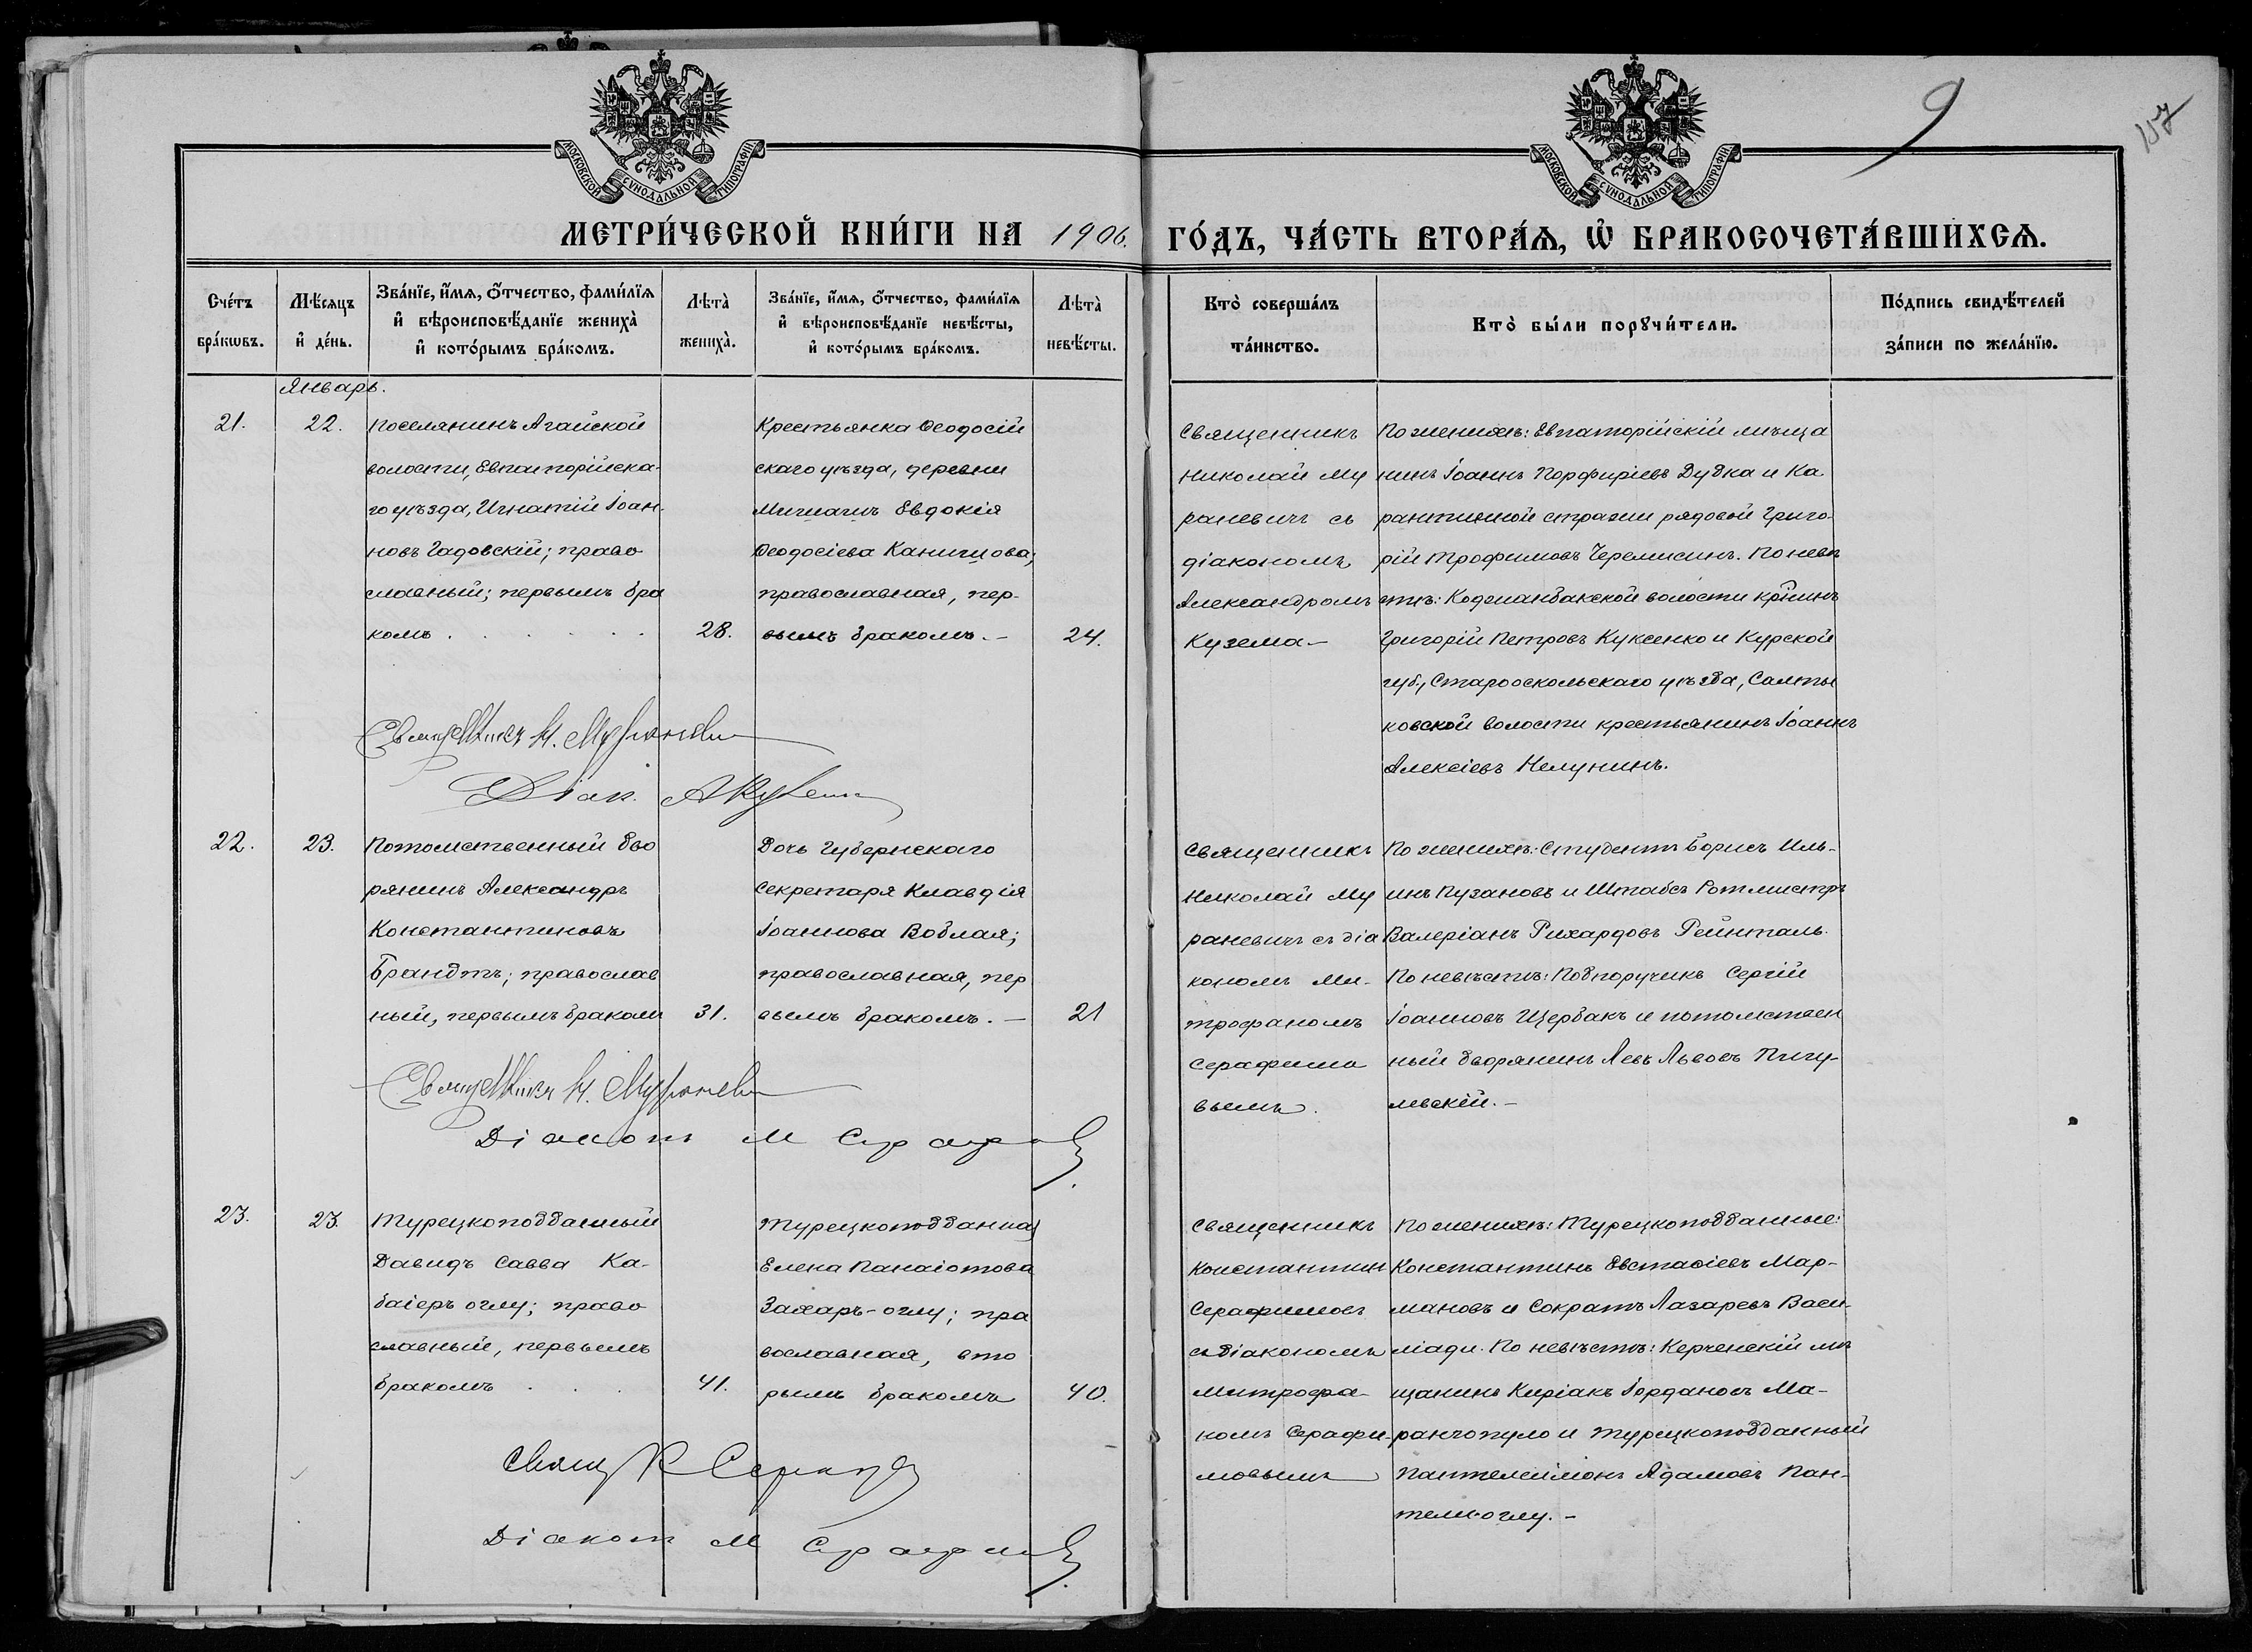 МОСКОВСКОЙ СѴНОДАЛЬНОЙ ТИПОГРАФІИ
МОСКОВСКОЙ СѴНОДАЛЬНОЙ ТИПОГРАФІИ
9
МЕТРИ́ЧЕСКОЙ КНИ́ГИ НА 1906. ГО́ДЪ, ЧА́СТЬ ВТОРА́Ѧ, Ѡ҆ БРАКОСОЧЕТА́ВШИХСѦ.
Сче́тъ бра́кωвъ.
Мѣ́сяцъ и҆ де́нь.
Зва́нїе, и҆́мѧ, ѻ҆́тчество, фами́лїѧ
и҆ вѣроисповѣ́данїе жениха̀
и҆ кото́рымъ бра́комъ.
Лѣта̀ жениха̀.
Зва́нїе, и҆́мѧ, ѻ҆́тчество, фами́лїѧ
и҆ вѣроисповѣ́данїе невѣ́сты,
и҆ кото́рымъ бра́комъ.
Лѣта̀ невѣ́сты.
Кто̀ соверша́лъ
та́инство.
Кто̀ бы́ли порꙋчи́тели.
По́дпись свидѣ́телей
за́писи по жела́нїю.
Январь.
21.
22.
Поселянинъ Агайской
волости, Евпаторійска-
го уѣзда, Игнатій Іоан-
новъ Гадовскій; право
славный; первымъ бра
комъ . . . . . .
28.
Крестьянка Ѳеодосій
скаго уѣзда, деревни
Евдокія
Ѳеодосіева Канищова;
православная, пер-
вымъ бракомъ. –
24.
Священникъ
Николай Му
раневичъ съ
діакономъ
Александромъ
Кузема –
По женихѣ: Евпаторійскій мѣща
нинъ Іоаннъ Порфиріевъ Дудка и Ка
рантинной стражи рядовой Григо-
рій Трофимовъ Черемисинъ. По невѣ
стѣ: волости кр̃нинъ
Григорій Петровъ Куксенко и Курской
губ., Старооскольскаго уѣзда, Салты
ковской волости крестьянинъ Іоаннъ
Алексіевъ Нелунинъ.
Священникъ Н. Мураневич
Діак. А Кузема
22.
23.
Потомственный дво
рянинъ Александръ
Константиновъ
Брандтъ; православ
ный, первымъ бракомъ
31.
Дочь Губернскаго
Секретаря Клавдія
Іоаннова Воблая;
православная, пер
вымъ бракомъ. –
21
Священникъ
Николай Му
раневичъ съ діа
кономъ Ми-
трофаномъ
Серафимо
вымъ.
По женихѣ: Студентъ Борисъ Иль-
инъ Пузановъ и Штабсъ Ротмистръ
Валеріанъ Рихардовъ Рейнталь.
По невѣстѣ: Подпоручикъ Сергій
Іоанновъ Щербакъ и потомствен
ный дворянинъ Левъ Львовъ Пигу-
левскій. –
Священникъ Н. Мураневич
Діаконъ М Серафимов
23.
23.
Турецкоподданный
Давидъ Савва Ка-
баіеръ оглу; право
славный, первымъ
бракомъ . . .
41.
Турецкоподданная
Елена Панаіотова
Захаръ-оглу; пра
вославная, вто
рымъ бракомъ
40.
Священникъ
Константин
Серафимовъ
съ діакономъ
Митрофа-
номъ Серафи-
мовымъ
По женихѣ: Турецкоподданные:
Константинъ Евстаѳіевъ Мар-
мановъ и Сократъ Лазаревъ Васи-
ліади. По невѣстѣ: Керченскій мѣ
щанинъ Киріакъ Іордановъ Ма-
ранчопуло и Турецкоподданный
Пантелеимонъ Адамовъ Пан-
тели-оглу. –
Свящ К Серафимов
Діаконъ М Серафимов